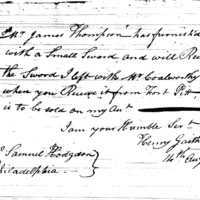 Mr. James Thompson has furnish'd
with a Small Sword and will Rec
the Sword I left with Mr. Coalworthy
when you Receive it from Fort Pitt
is to be sold on my Act
I am your Humble Sert
Henry Gaith
Samuel Hodgdon
14th Au
iladelphia.